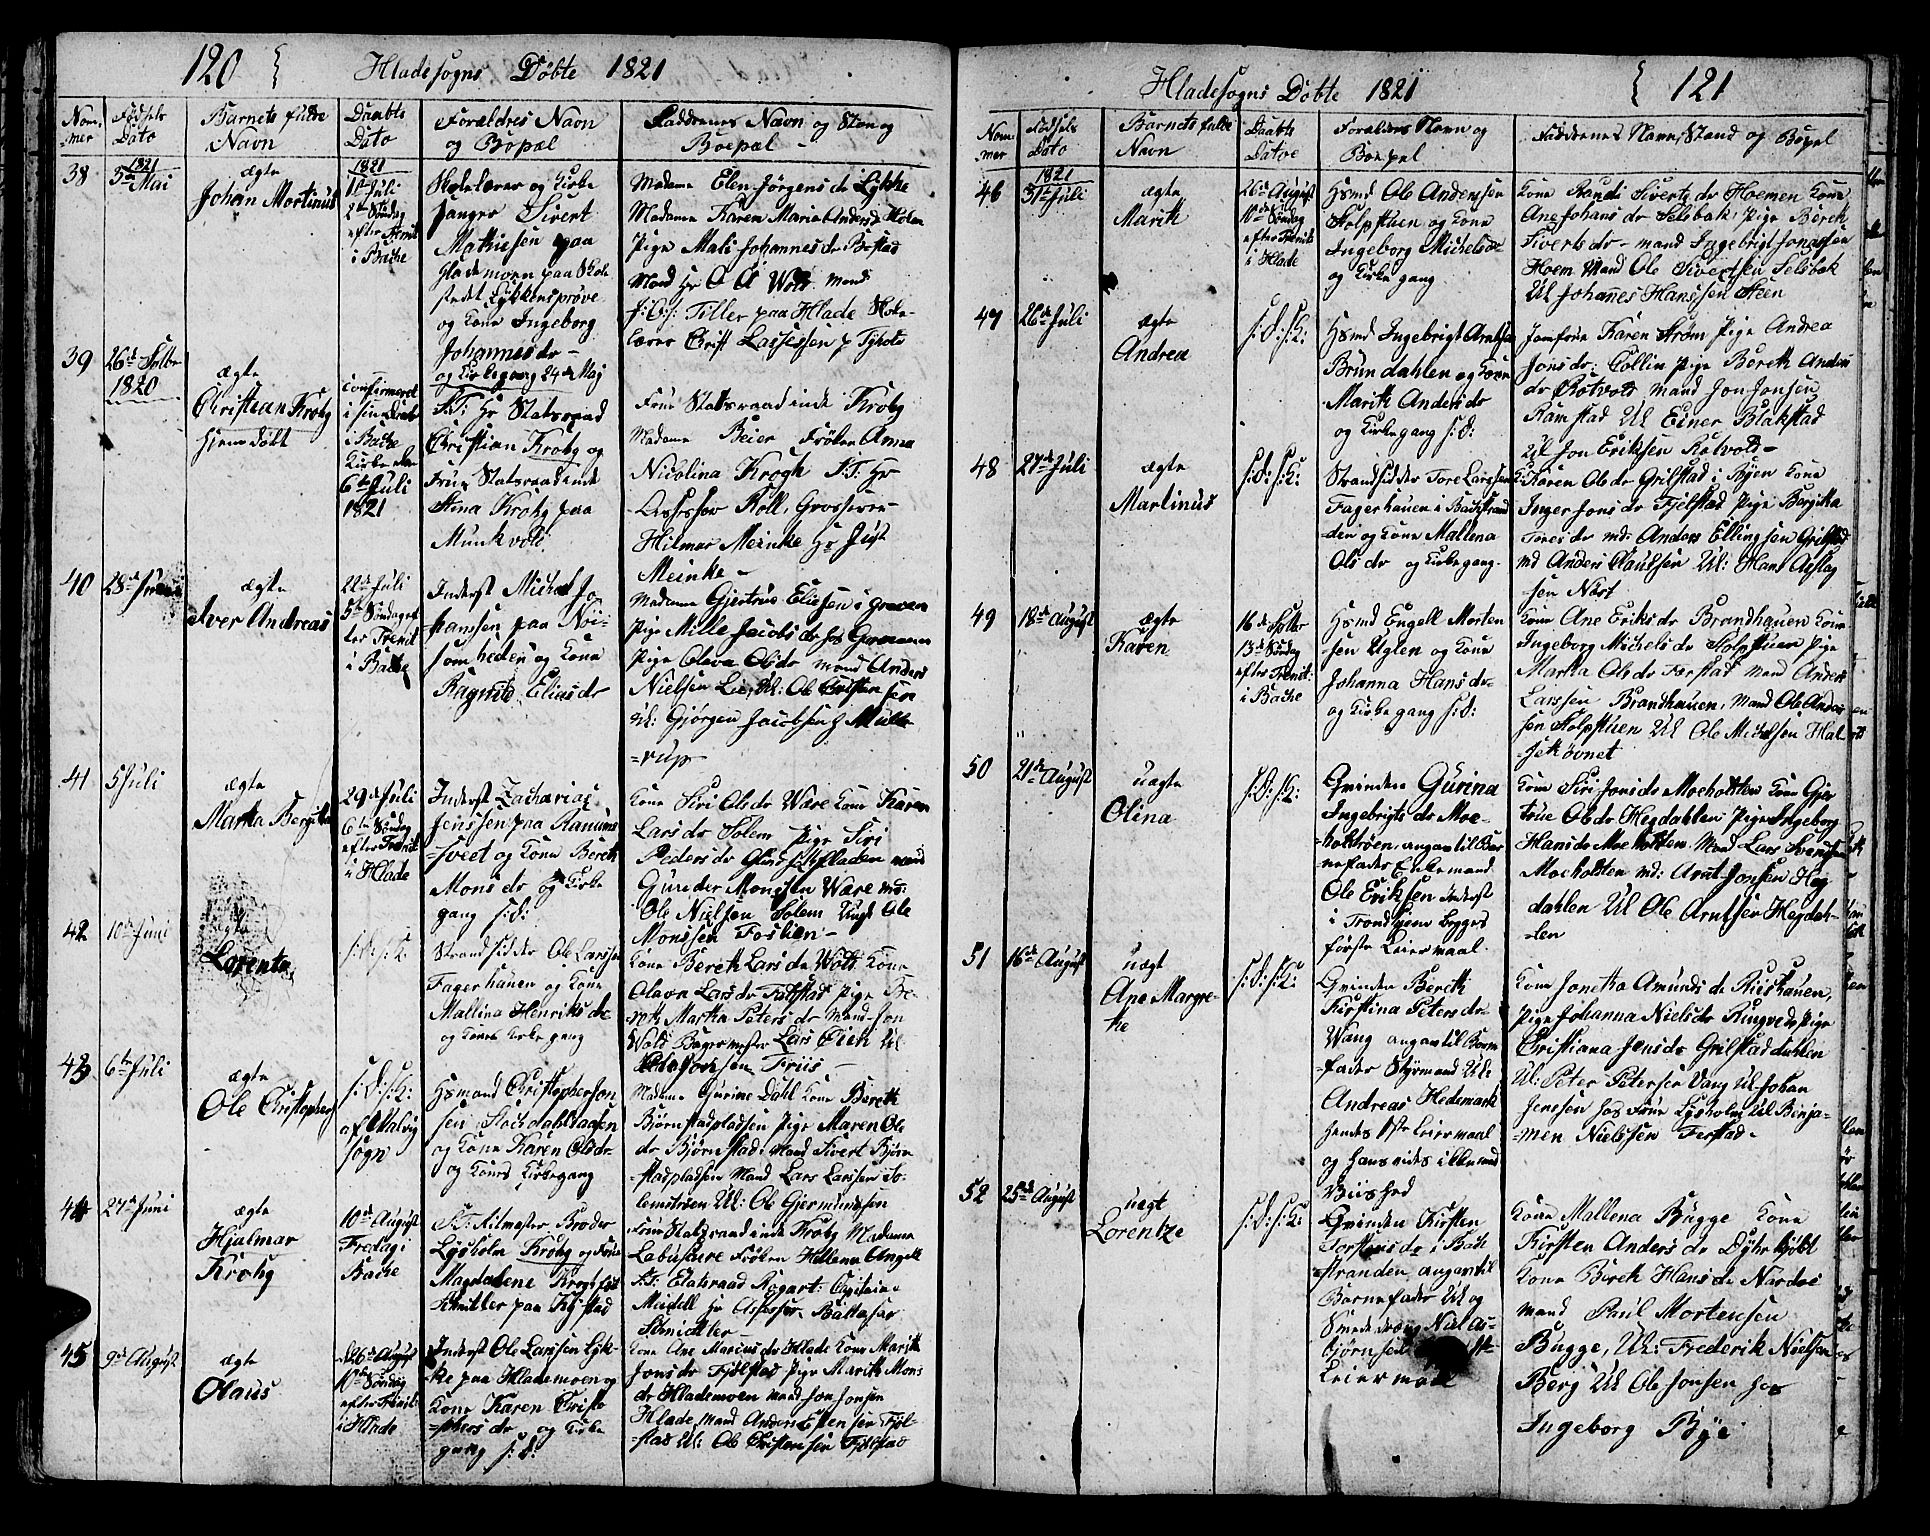 120 Hlade sogns Døbte 1821
Nommer
Fødsels Dato
Barnets fulde Navn
Daabts Dato
Forældres Navn og Bopæl
Faddernes Navn og Stan og Boepæl
38
1821
5te Mai
ægte
Johan Martinus
1821
1te Juli
2de Søndag
efter Trenit
i Bache
Skolelærer og Kirke
sanger Sivert
Mathiesen paa
Hlademoen paa Skole
stedet Lykkens prøve
og Kone Ingeborg
Johannesdr
og Kirkegang 24de Maj
Madame Elen Jørgensdr Lykke
Madame Karen Maria Andersd Holen
Pige Mali Johannesdr Bostad
Mand Hr O A Wold Mand
J: O: Tiller paa Hlade Skole
lærer Christ Lassessen p Tyholt
39
26de Septbr
1820
ægte
Christian Krohg
hjemdøbt
confirmeret
i sin Daab
i Bache
Kirke den
6te Juli
1821
S:T: Hr Statsraad
Christian Krohg og
Frue Statsraadinde
Stina Krohg paa
Munkvold
Frue Statsraadinde Krohg
Madame Beier Frøken Anna
Nicolina Krogh S:T: Hr
Assessor Roll, Grosserer
Hilmar Meinke Hr Just
Meinke
40
28de Juni
ægte
Iver Andreas
22de Juli
5te Søndag ef
ter Trenit
i Bache
Inderst Michel Jo
hanssen paa Vei
somheden og Kone
Ragnild Eliasdr
Madame Gjertrue Eliesen i Graven
Pige Mille Jacobsdr hos Garmann
Pige Olava Olsdr Mand Anders
Nielsen Lie, Uk: Ole Ellefsen
Uk: Gjørgen Jacobsen p Mulle
rup
41
5 Juli
ægte
Marta Bergitta
29de Juli
6te Søndag
efter Trenit
i Hlade
Inderst Zacharias
Jenssen paa Ranums
sveet og Kone Bereth
Monsdr og Kirke
gang s:D:
Kone Siri Olsdr Wære Kone Karen
Larsdr Solem Pige Siri
Pedersdr Mand
Gunder Monssen Wære md:
Ole Nielsen Solem Ungk Ole
Monssen Foslien
42
10de Juni
ægte
Lorents
s:D: s:K:
Strandsidder Ole Larssen
Fagerhauen og Kone
Mallina Henriksdr
og Kones Kirkegang
Kone Bereth Larsdr Wold Kone
Olava Larsdr Falstad Pige Be
reth Marta Petersdr Mand Jon
Wold Bagermester Lars Eich Uk
Friis
43
6te Juli
ægte
Ole Christopher
s:D: s:K:
af Malvig
sogn
Hsmand Christopherson
sen Stocsdahlsaasen
og Kone Karen Olsdr
og Kones Kirkegang
Madame Gurine Dahl Kone Bereth
Bjørnstadpladsen Pige Maren Ole
dr Bjørnstad Mand Sivert Bjørn
stadpladsen Mand Lars Larssen So
lemstrøen Uk: Ole Gjermundsen
44
27de Juni
ægte
Hjalmar
Krohg
10de August
Fredag i
Bache
S:T: Ritmester Broder
Lysholm Krohg og Frue
Magdalene Krogh født
Schnitler paa Rystad
Frue Statsraadinde Krohg Madame
Labustiere Frøken Hellena Angell
S:T: Etatsraad Rogart: Capitaine
Mindell Hr Assessor Baltaser
Schnidtler
45
9de August
ægte
Olaus
26de August
10de Søndag
efter Trenit
i Hlade
Inderst Ole Larssen Lyk
ke paa Hlademoen og
Kone Karen Cristo
phersdr og Kirke
gang s:D:
Kone Ane Mariusdr Hlade Kone Marith
Jonsdr Fjølstad Pige Marith Mons
dr Hlademoen Mand Jon Jonsen
Hlade Mand Anders Ellensen Fjøl
stad Uk: Ole Christensen Fjølstad
Hlade sogns Døbte 1821 121
Nommer
Fødsels Dato
Barnets fulde Navn
Daabts Datoe
Forældres Navn og Boepel
Faddernes Navn, Stand og Bopel
46
1821
31te Juli
ægte
Marith
26de August
10de Søndag
efter Trenit
i Hlade
Hsmd Ole Anderssen
Stolpstuen og Kone
Ingeborg Michelsdr
og Kirkegang
Kone Randi Sivertsdr Hoemen Kone
Ane Johansdr Selsbak Pige Bereth
Sivertsdr mand Ingebrigt Jonassen
Hoem Mand Ole Sivertsen Selsbak
Uk Johannes Hanssen Steen
47
26de Juli
ægte
Andrea
s:D: s:K:
Hsmd Ingebrigt Arntsen
Brundahlen og Kone
Marith Andersdr
og Kirkegang s:D:
Jomfrue Karen Strøm Pige Andrea
Jonsdr Collin Pige Bereth Anders
dr Rotvold Mand Jon Jonsen
Ramstad Uk Einer Blakstad
Uk Jon Eriksen Rotvold
48
27de Juli
ægte
Martinus
s:D: s:K:
Strandsidder Tore Larssen
Fagerhauen i Backstran
den og Kone Mallena
Olsdr og Kirkegang
K: Karen Olsdr Grilstad i Byen Kone
Inger Jonsdr Fjelstad Pige Bergitta
Toresdr md: Anders Ellingsen Grilstad
md Anders Paulsen Uk: Hans Aslag
sen Næst
49
18de August
ægte
Karen
16de Septbr
13de Søndag
efter Trenit:
i Bache
Hsmd Engell Morten
sen Uglen og Kone
Johanna Hansdr
og Kirkegang s:D:
Kone Ane Eriksdr Brandhauen Kone
Ingeborg Michelsdr Stolpstuen Pige
Marta Olsdr Færstad Mand Anders
Larssen Brandhauen, Mand Ole Anders
sen Stolpstuen Uk Ole Michelsen Hal
sethøvnet
50
21de August
uægte
Olina
s:D: s:K:
Qvinden Gurina
Ingebrigtsdr Moe
holtrøen, angav til Bar
nefader Enkemand
Ole Eriksen Inderste
i Trondhjem begges
første Leiermaal
Kone Siri Jonsdr Moeholten Kone Gjer
true Olsdr Hegdahlen Pige Ingeborg
Hansdr Moeholten Mand Lars Svendsen
Moeholten md: Arnt Jonsen Heg
dahlen Uk Ole Arntsen Hegdah
len
51
16de August
uægt
Ane Margre
the
s:D: s:K:
Qvinden Bereth
Kirstina Petersdr
Wang angav til Barne
fader Styrmand Uk:
Andreas Hedemark
hendes 1ste Leiermaal
og hans vides ikke med
Viished
Kone Jonetha Amundsdr Ruishauen,
Pige Johanna Nielsdr Ringved Pige
Christiana Jensdr Grilstaddahlen
Uk: Peter Petersen Vang Uk Johan
Jenssen hos Frue Lysholm Uk Benja
men Nielssen Ferstad
52
25de August
uægt
Lorentze
s:D: s:K:
Qvinden Kirsten
Torstensdr i Back
stranden angav til
Barnefader Uk og
Smededreng Niels As
bjørnsen 1ste
Leiermaal
Kone Mallena Bugge Kone
Kirsten Andersdr Dyhrhjølt
Kone Bereth Hansdr Nardoe
mand Paul Mortensen
Bugge, Uk: Frederik Nielsen
Berg Uk Ole Jonsen hos
Ingeborg Bye